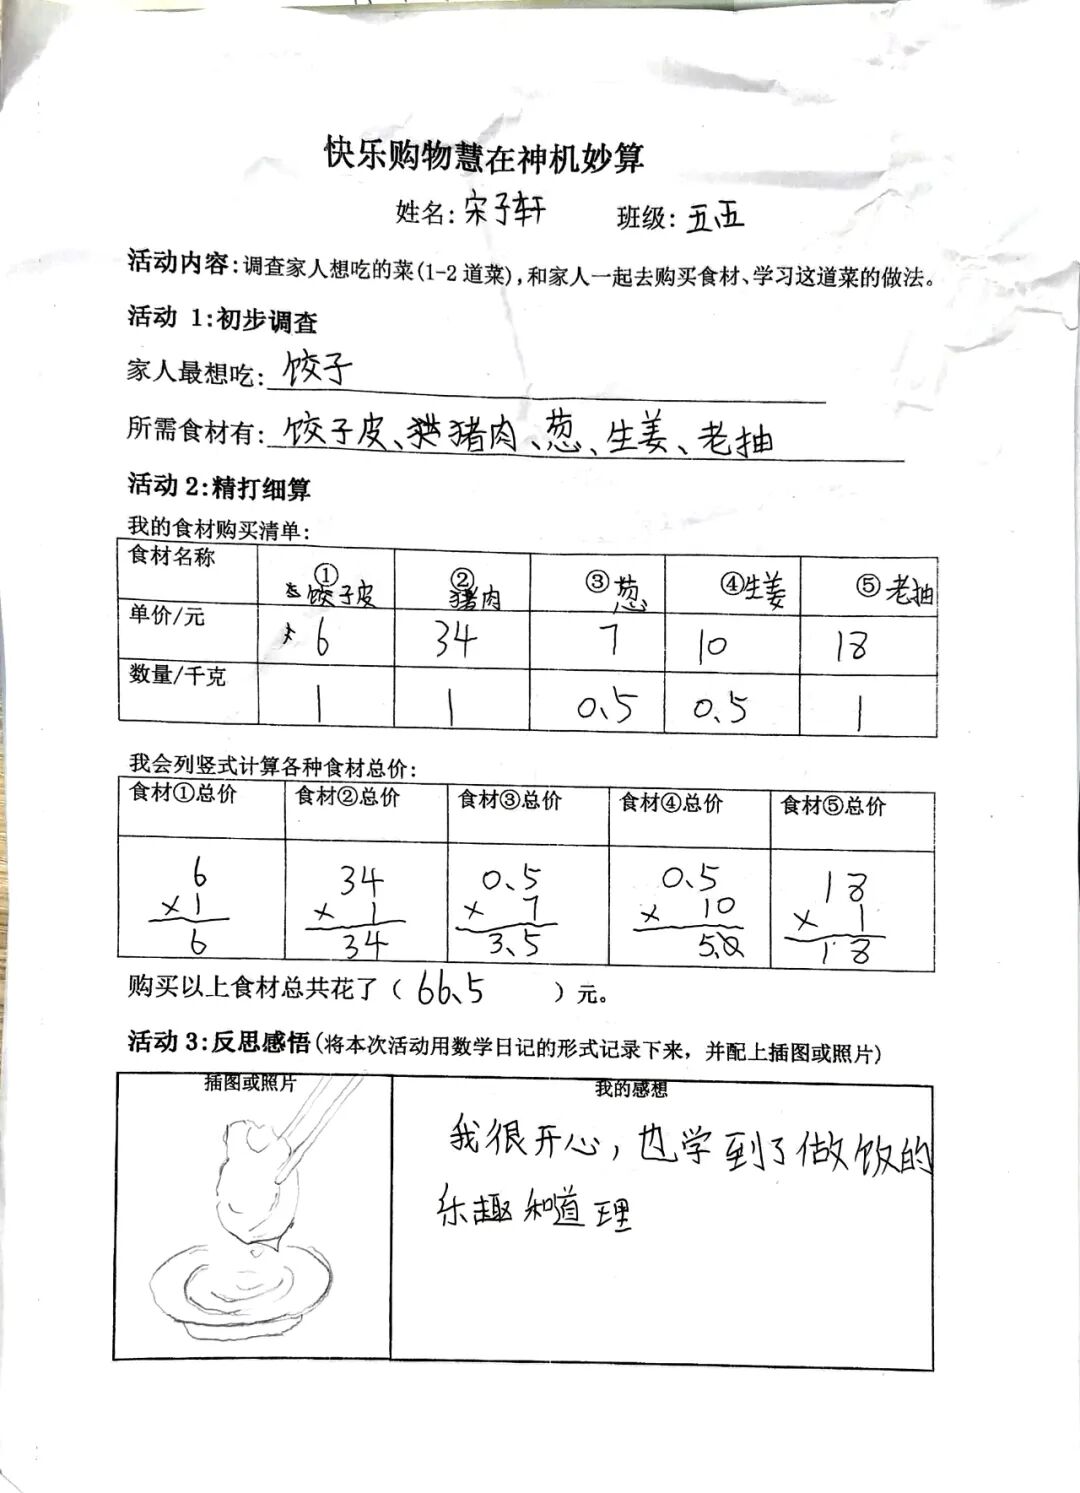 快乐购物慧在神机妙算
姓名:宋子轩 班级:五、五
活动内容:调查家人想吃的菜(1-2道菜),和家人一起去购买食材、学习这道菜的做法。
活动 1:初步调查
家人最想吃:饺子
所需食材有:饺子皮、猪肉、葱、生姜、老抽
活动2:精打细算
我的食材购买清单:
食材名称 ①饺子皮 ②猪肉 ③葱 ④生姜 ⑤老抽
单价/元 6 34 7 10 18
数量/千克 1 1 0.5 0.5 1
我会列竖式计算各种食材总价:
食材①总价 食材②总价 食材③总价 食材④总价 食材⑤总价
6 34 0.5 0.5 18
×1 ×1 ×7 ×10 ×1
6 34 3.5 5.0 18
购买以上食材总共花了(66.5)元。
活动3:反思感悟(将本次活动用数学日记的形式记录下来，并配上插图或照片)
插图或照片 我的感想
我很开心，也学到了做饭的
乐趣和道理